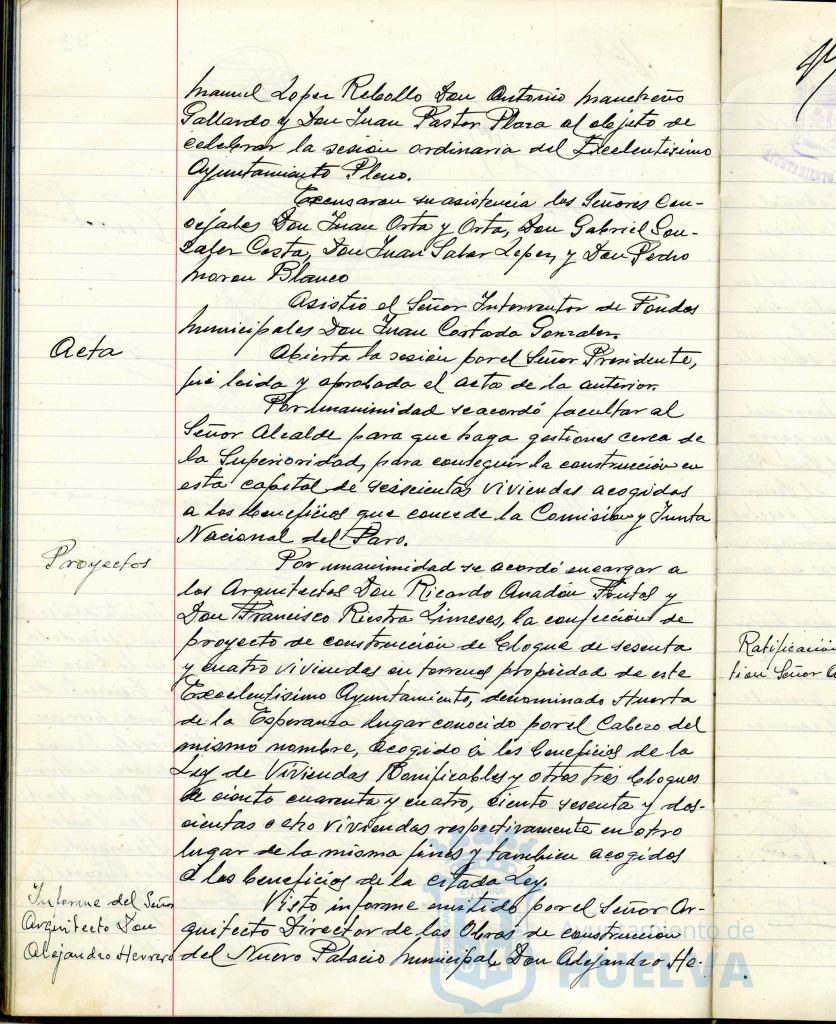 Manuel Lopez Rebollo Don Antonio Mancheño
Gallardo y Don Juan Pastor Plaza al objeto de
celebrar la sesion ordinaria del Excelentisimo
Ayuntamiento Pleno.
Excusaron su asistencia los Señores Con-
cejales Don Juan Orta y Orta, Don Gabriel Gon-
zalez Costa, Don Juan Lopez, y Don Pedro
Moron Blanco
Asistio el Señor Interventor de Fondos
Municipales Don Juan Cortada Gonzalez.
Acta
Abierta la sesion por el Señor Presidente,
fue leida y aprobada el acta de la anterior.
Por unanimidad se acordó facultar al
Señor Alcalde para que haga gestiones cerca de
la Superioridad, para conseguir la construcción en
esta capital de seiscientas viviendas acogidas
a los beneficios que concede la Comision y Junta
Nacional del Paro.
Proyectos
Por unanimidad se acordó encargar a
los Arquitectos Don Ricardo Anadón Frutos y
Don Francisco Riestra Limeses, la confección de
proyecto de construcción de bloque de sesenta
y cuatro viviendas en terrenos propiedad de este
Excelentisimo Ayuntamiento, denominado Huerta
de la Esperanza lugar conocido por el Cabezo del
mismo nombre, acogido a los beneficios de la
Ley de Viviendas Bonificables y otros tres bloques
de ciento cuarenta y cuatro, ciento sesenta y dos-
cientas ocho viviendas respectivamente en otro
lugar de la misma finca y tambien acogidos
a los beneficios de la citada Ley.
Informe del Señor
Arquitecto Don
Alejandro Herrero
Visto informe emitido por el Señor Ar-
quitecto Director de las Obras de construcción
del Nuevo Palacio Municipal, Don Alejandro He-
Ratificación
Señor
Ayuntamiento de
HUELVA
AYUNTAMIENTO